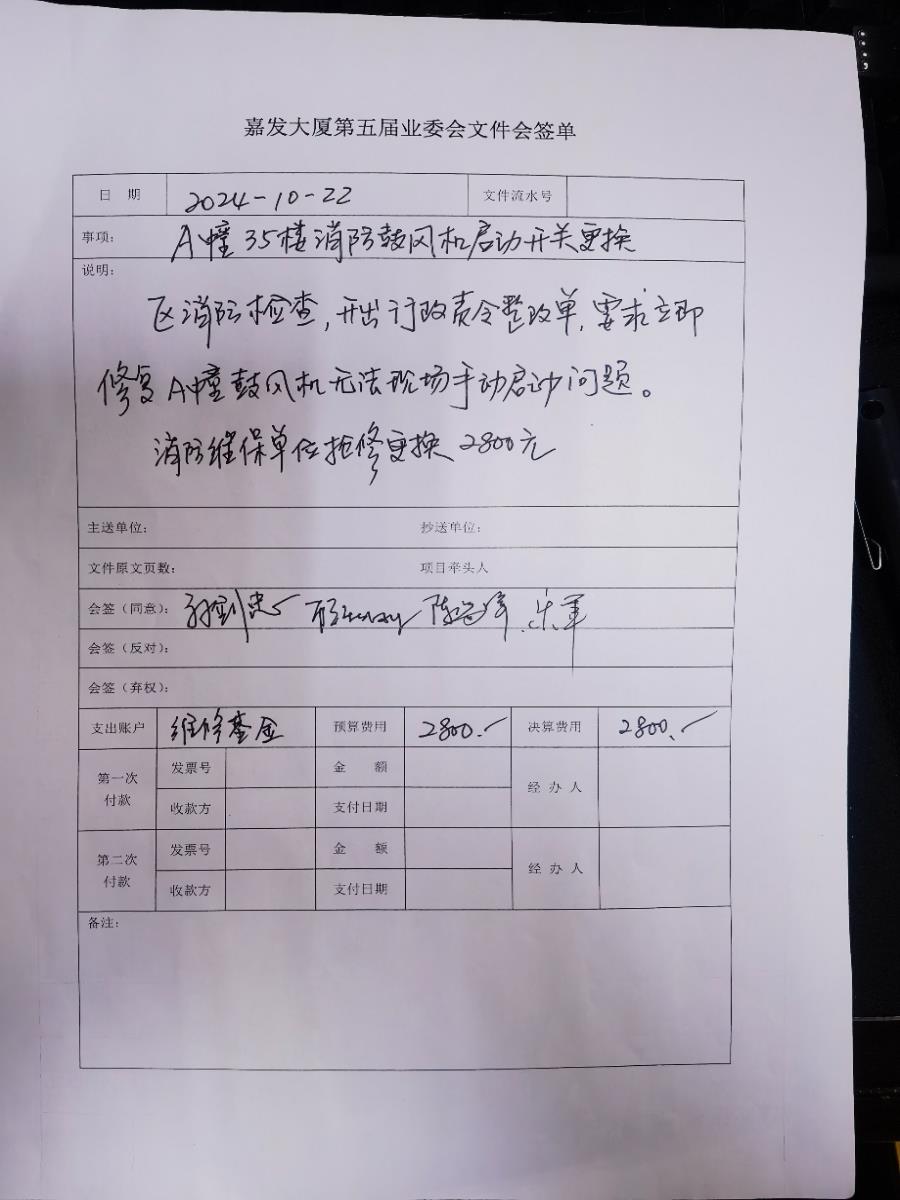 嘉发大厦第五届业委会文件会签单
日 期 2024-10-22 文件流水号
事项: A幢35楼消防鼓风机启动开关更换
说明:
区消防检查,开出行政责令整改单,要求立即
修复A幢鼓风机无法现场手动启动问题。
消防维保单位抢修更换2800元
主送单位: 抄送单位:
文件原文页数: 项目牵头人
会签(同意):
会签(反对):
会签(弃权):
支出账户 维修基金 预算费用 2800.- 决算费用 2800.-
第一次付款 发票号 金 额 经办人
收款方 支付日期
第二次付款 发票号 金 额 经办人
收款方 支付日期
备注: